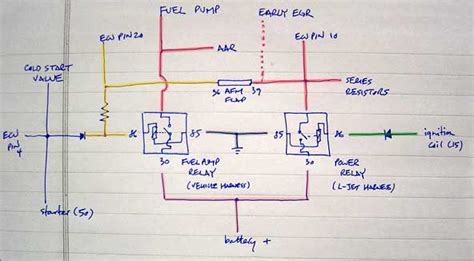 FUEL PUMP
EARLY EGR
ECU PIN 20
ECU PIN 10
COLD START
VALVE
AAR
36 AFM 39
FLAP
SERIES
RESISTORS
ECU
PIN
4
86
85
85
86
ignition
coil (15)
30
FUEL PUMP
RELAY
(VEHICLE HARNESS)
30
POWER
RELAY
(L-JET HARNESS)
starter (50)
battery +